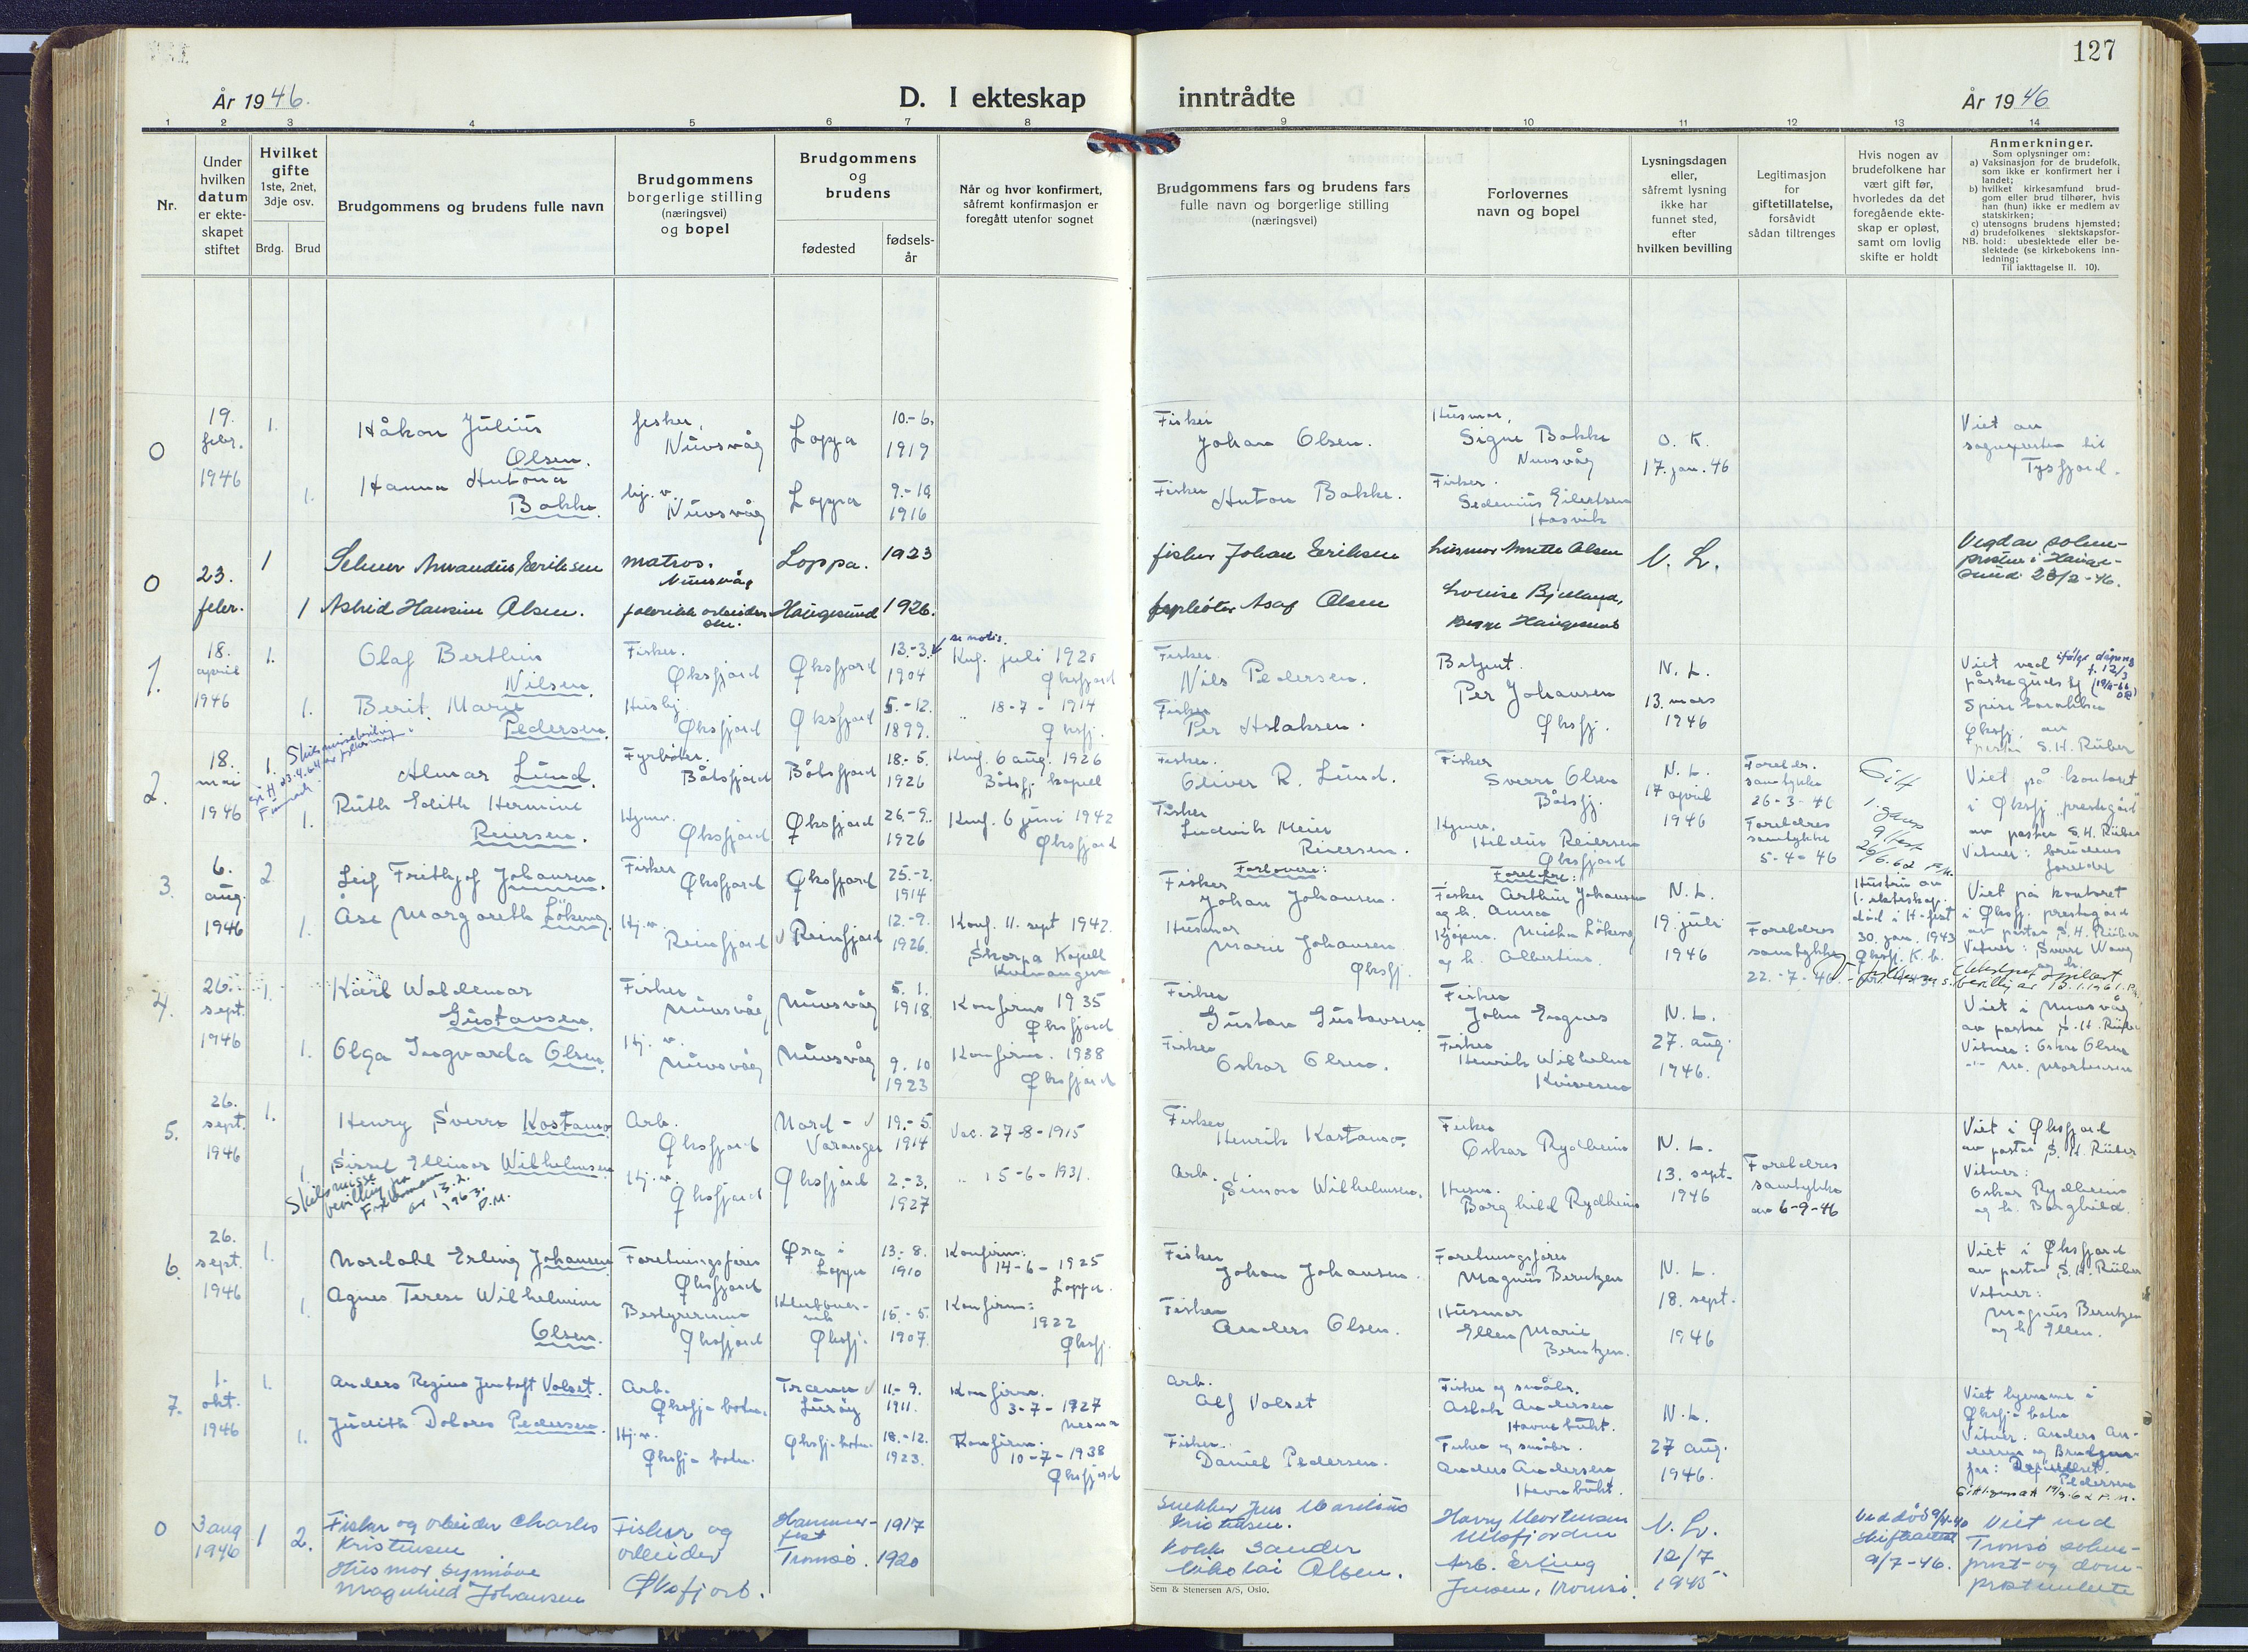 127
År 1946.
D. I ekteskap inntrådte
År 1946
1 2 3 4 5 6 7 8 9 10 11 12 13 14
Nr.
Under hvilken datum er ekteskapet stiftet
Hvilket gifte
1ste, 2net, 3dje osv.
Brdg. Brud
Brudgommens og brudens fulle navn
Brudgommens borgerlige stilling (næringsvei) og bopel
Brudgommens og brudens
fødested
fødsels-år
Når og hvor konfirmert, såfremt konfirmasjon er foregått utenfor sognet
Brudgommens fars og brudens fars fulle navn og borgerlige stilling (næringsvei)
Forlovernes navn og bopel
Lysningsdagen eller, såfremt lysning ikke har funnet sted, efter hvilken bevilling
Legitimasjon for giftetillatelse, forsåvidt sådan tiltrenges
Hvis nogen av brudefolkene har vært gift før, hvorledes da det foregående ekteskap er opløst, samt om lovlig skifte er holdt
Anmerkninger.
Som oplysninger om:
a) Vaksinasjon for de brudefolk, som ikke er konfirmert her i landet;
b) hvilket kirkesamfund brudgom eller brud tilhører, hvis han (hun) ikke er medlem av statskirken;
c) utensogns brudens hjemsted;
d) brudefolkenes slektskapsforhold: ubeslektede eller beslektede (se kirkebokens innledning;
NB.
Til iakttagelse II. 10).
0 19. febr. 1946 1. Håkon Julius Olsen. fisker, Nuvsvåg Loppa 10.-6. 1919 Fisker Johan Olsen. Husmor, Signe Bakke Nuvsvåg O. K. 17. jan. 46 Viet av sognepresten til Tysfjord.
1. Hanna Antona Bakke. hj. v. Nuvsvåg Loppa 1916 Fisker Anton Bakke. Fisker. Sedenius Eilertsen Hasvik
0 23. febr. 1 Selmer Amandus Eriksen matros. Nuvsvåg Loppa. 1923 fisker Johan Eriksen husmor Anette Olsen N. L. Haugesund 23/2-46.
1 Astrid Hansine Olsen. Haugesund 1926. Asaf Olsen Louise Bjelland, Haugesund
1. 18. april 1946 1. Olaf Berthin Nilsen. Fisker. Øksfjord Øksfjord 13.-3. 1904 se notis. Knf. juli 1920 Øksfjord Fisker. Nils Pedersen. Betjent. Per Johansen Øksfj. N. L. 13. mars 1946 Viet ved påskegudstj. Øksfj. av pastor S. H. Rüber
1. Berit Marie Pedersen. Hushj. Øksfjord Øksfjord 5.-12. 1899. " 18-7-1914 Øksfj. Fisker Per Aslaksen.
2. 18. mai 1946 1. Almar Lund. Fyrbøter. Båtsfjord Båtsfjord 18.-5. 1926 Knf. 6 aug. 1926 Båtsfj. kapell Fisker. Oliver R. Lund. Fisker Sverre Olsen Båtsfj. N. L. 17 april 1946 Foreldr. samtykke 26-3-46 Gift Viet på kontoret i Øksfj. prestegård av pastor S. H. Rüber Vitner: brudens foreldre
1. Ruth Edith Hermine Reiersen. Hjmv. Øksfjord Øksfjord 26.-9. 1926 Knf. 6 juni 1942 Øksfjord Fisker Ludvik Meier Reiersen. Hjmv. Hildus Reiersen Øksfjord Foreldres samtykke 5-4-46
3. 6. aug. 1946 2. Leif Frithjof Johansen. Fisker Øksfjord Øksfjord 25.-2. 1914 Forlovere: Fisker Johan Johansen. Foreldre: Fisker Arthur Johansen og h. Anna N. L. 19. juli 1946 Hustru av 1. ekteskap død i H-fest 30. jan. 1943 Øksfj. K. b. Viet på kontoret i Øksfj. prestegård av pastor S. H. Rüber Vitner: Sverre Wang og h.
1. Åse Margareth Løkeng. Hj. v. Reinfjord Reinfjord 12.-9. 1926. Konf. 11. sept 1942. Skorpa Kapell Kvænangen Husmor Marie Johansen Øksfj. Kjøpm. Løkeng og h. Albertine. Foreldres samtykke 22.-7-46.
4. 26. sept. 1946 1. Karl Waldemar Gustavsen. Fisker Nuvsvåg Nuvsvåg 5. 1. 1918 Konfirm. 1935 Øksfjord Fisker Gustav Gustavsen Fisker John Engnes N. L. 27. aug. 1946. Viet i Nuvsvåg av pastor S. H. Rüber Vitner: Oskar Olsen M. Mortensen
1. Olga Ingvarda Olsen. Hj. v. Nuvsvåg Nuvsvåg 9. 10 1923 Konfirm. 1938 Øksfjord Fisker Oskar Olsen. Fisker Henrik Wilhelm Kvivesen
5. 26. sept. 1946 1. Henry Sverre Kostamo Arb. Øksfjord Nord-Varanger 19.-5. 1914 Vac. 27-8-1915 Fisker Henrik Kostamo. Fisker Oskar Rydheim N. L. 13. sept. 1946 Viet i Øksfjord av pastor S. H. Rüber Vitner: Oskar Rydheim og h. Borghild.
1. Sissel Ellinor Wilhelmsen Hj. v. Øksfjord Øksfjord 2.-3. 1927 " 15-6-1931. Arb. Simon Wilhelmsen. Husm. Borghild Rydheim Foreldres samtykke av 6-9-46
Skilsmisse bevilling fra Fylkesmannen av 13.2. 1963. P.M.
6. 26. sept. 1946 1. Nordahl Erling Johansen Forretningsfører Øksfjord Øra i Loppa 13.-8. 1910 Konfirm: 14-6-1925 Loppa. Fisker Johan Johansen. Forretningsfører Magnus Berntzen N. L. 18. sept. 1946 Viet i Øksfjord av pastor S. H. Rüber Vitner: Magnus Berntzen og h. Ellen.
1. Agnes Terese Wilhelmine Olsen. Bestyrerinne Øksfjord Klubbnesvik Øksfj. 15.-5. 1907. Konfirm: 1922 Øksfj. Fisker Anders Olsen. Husmor Ellen Marie Berntzen.
7. 1. okt. 1946 1. Anders Regius Jentoft Valset. Arb. Øksfj. botn. Træna Lurøy 11.-9. 1911. Konfirm. 3-7-1927 Nesna Arb. Alf Valset Fisker og småbr. Aslak Andersen Havnebukt. N. L. 27 aug. 1946. Viet hjemme i Øksfj. botn Vitner: Anders Andersen og Brudgom far: Pedersen
1. Judith Dolores Pedersen. Hj. v. Øksfj. botn. Øksfj. botn. 18.-12. 1923. Konfirm. 10-7-1938 Øksfjord Fisker. Daniel Pedersen. Fisker og småbr. Anders Andersen Havnebukt.
0 3 aug 1946 1 2. Fisker og arbeider Charles Kristensen Fisker og arbeider Øksfjord. Hammerfest 1917 Snekker Jens Marelius Kristensen. Harry Mortensen Ulsfjorden N. L. 12/7 1945 Ved død 9/4-40 9/7-46. Viet ved Tromsø
Husmor Synnøve Magnhild Johansen Tromsø. 1920 Kokk Sander Nikolai Olsen. Arb. Erling Jensen, Tromsø.
Sem & Stenersen A/S, Oslo.